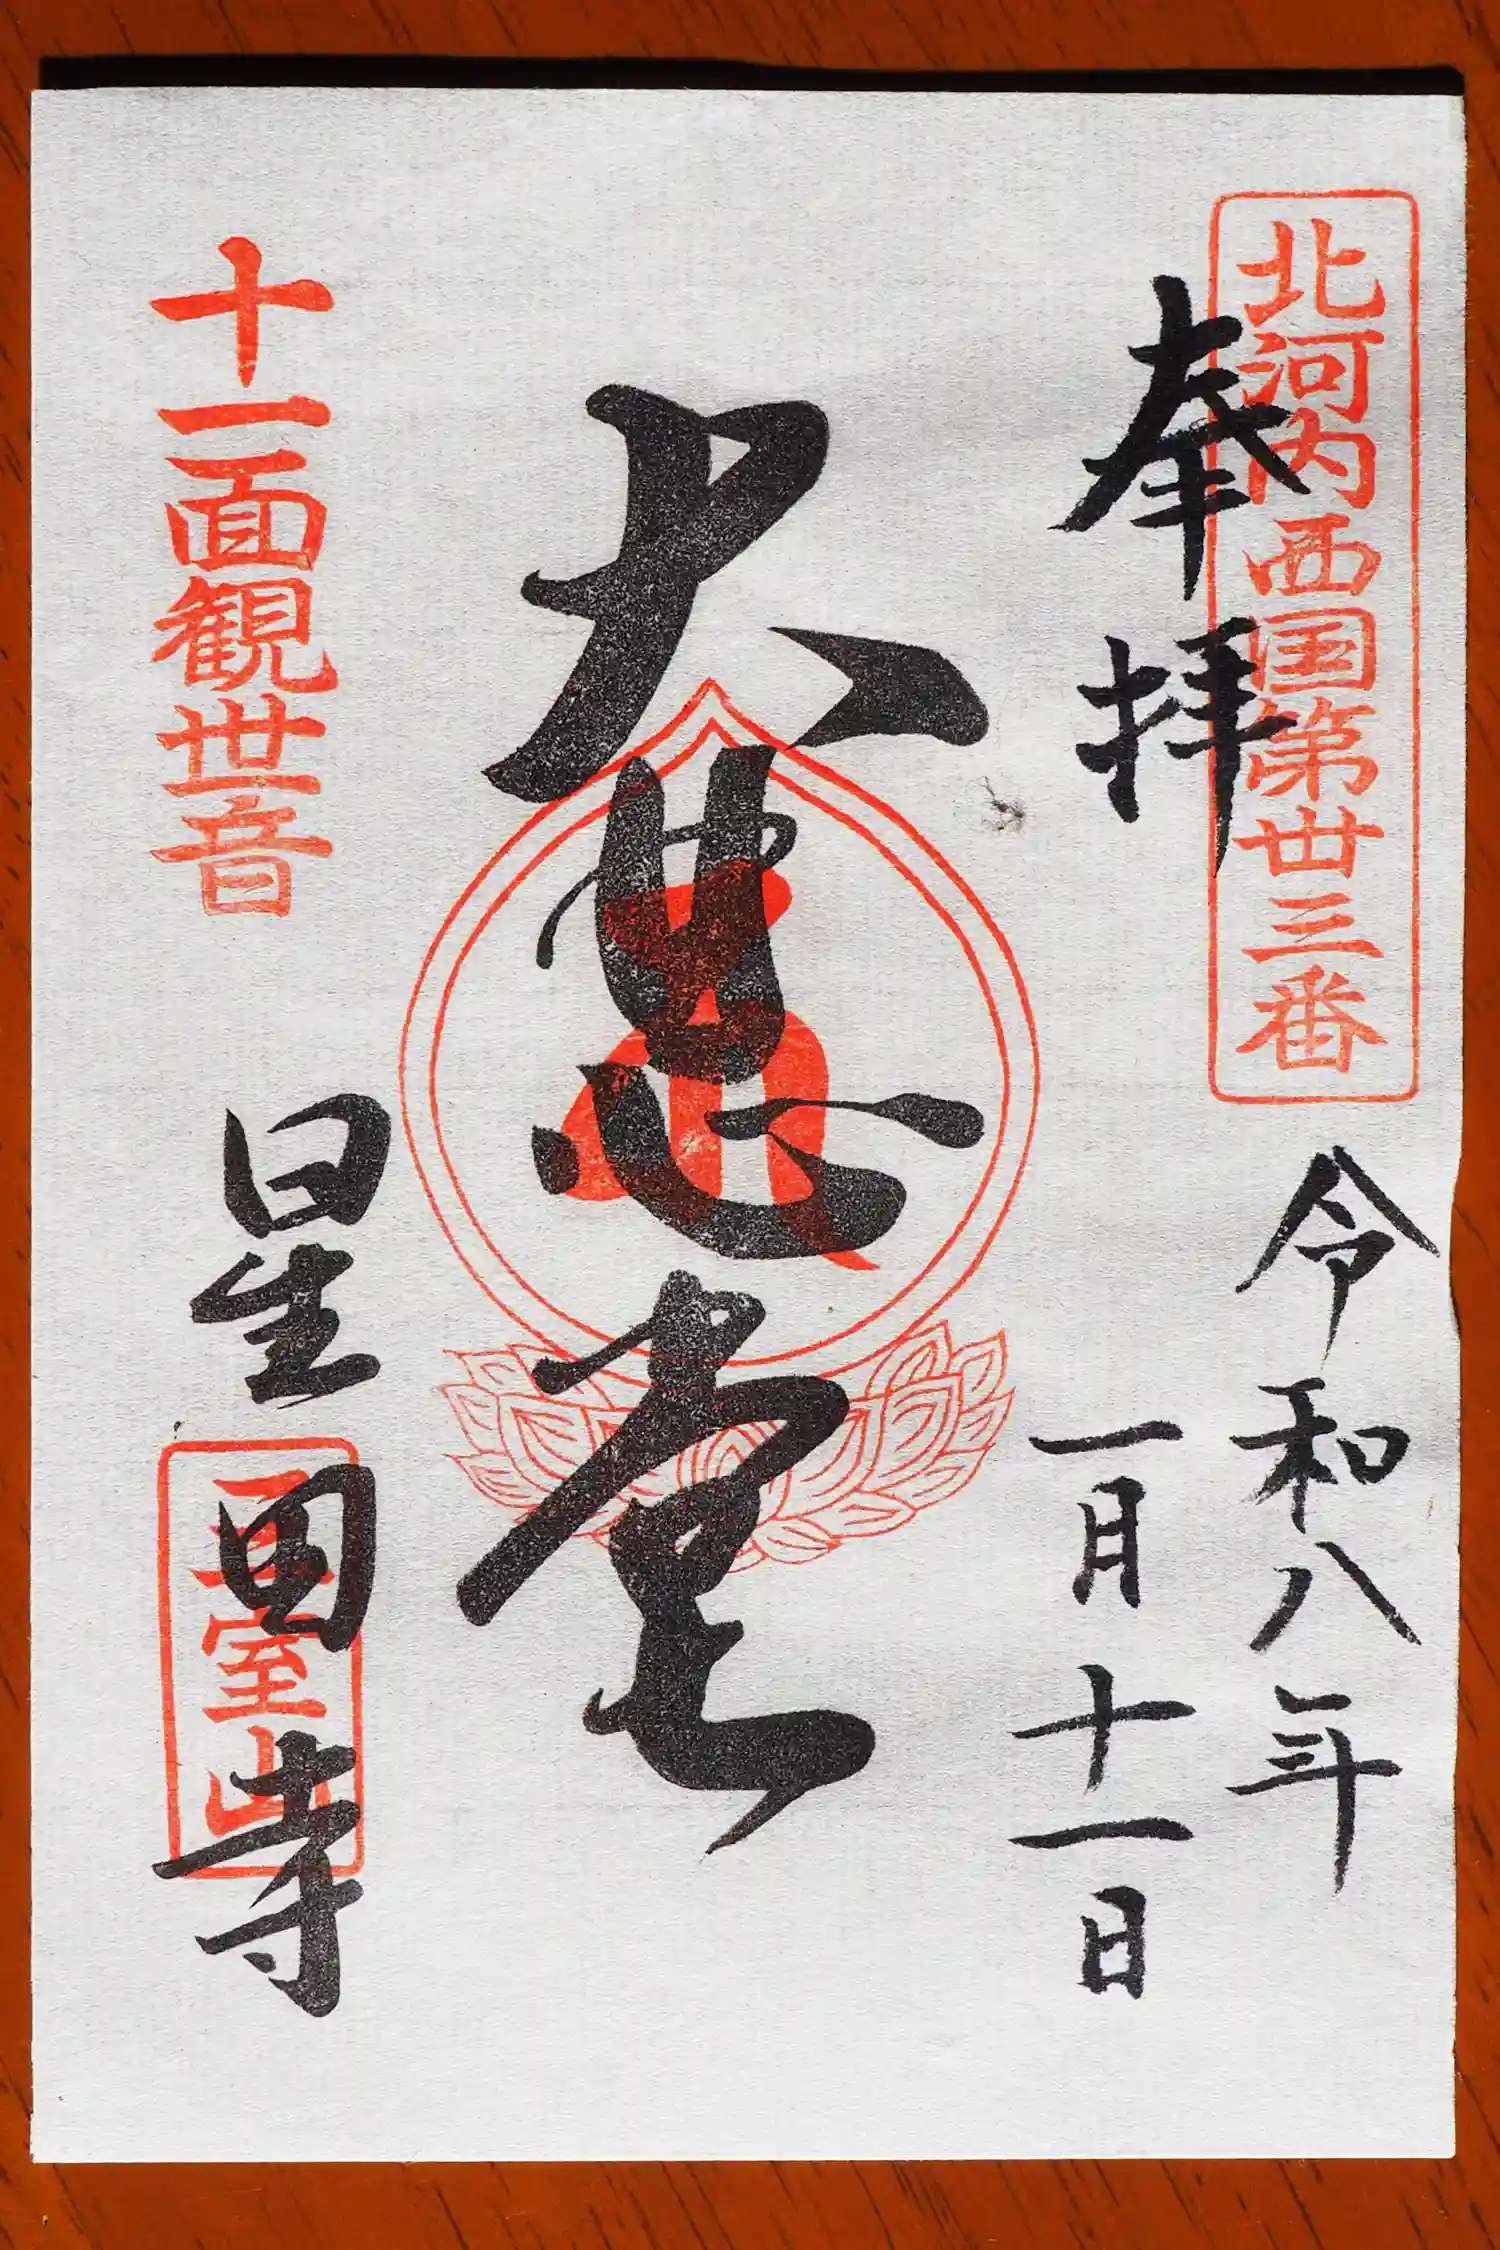 北河内西国第丗三番
奉拝
令和八年
一月十一日
大悲堂
十一面観世音
星田寺
室山